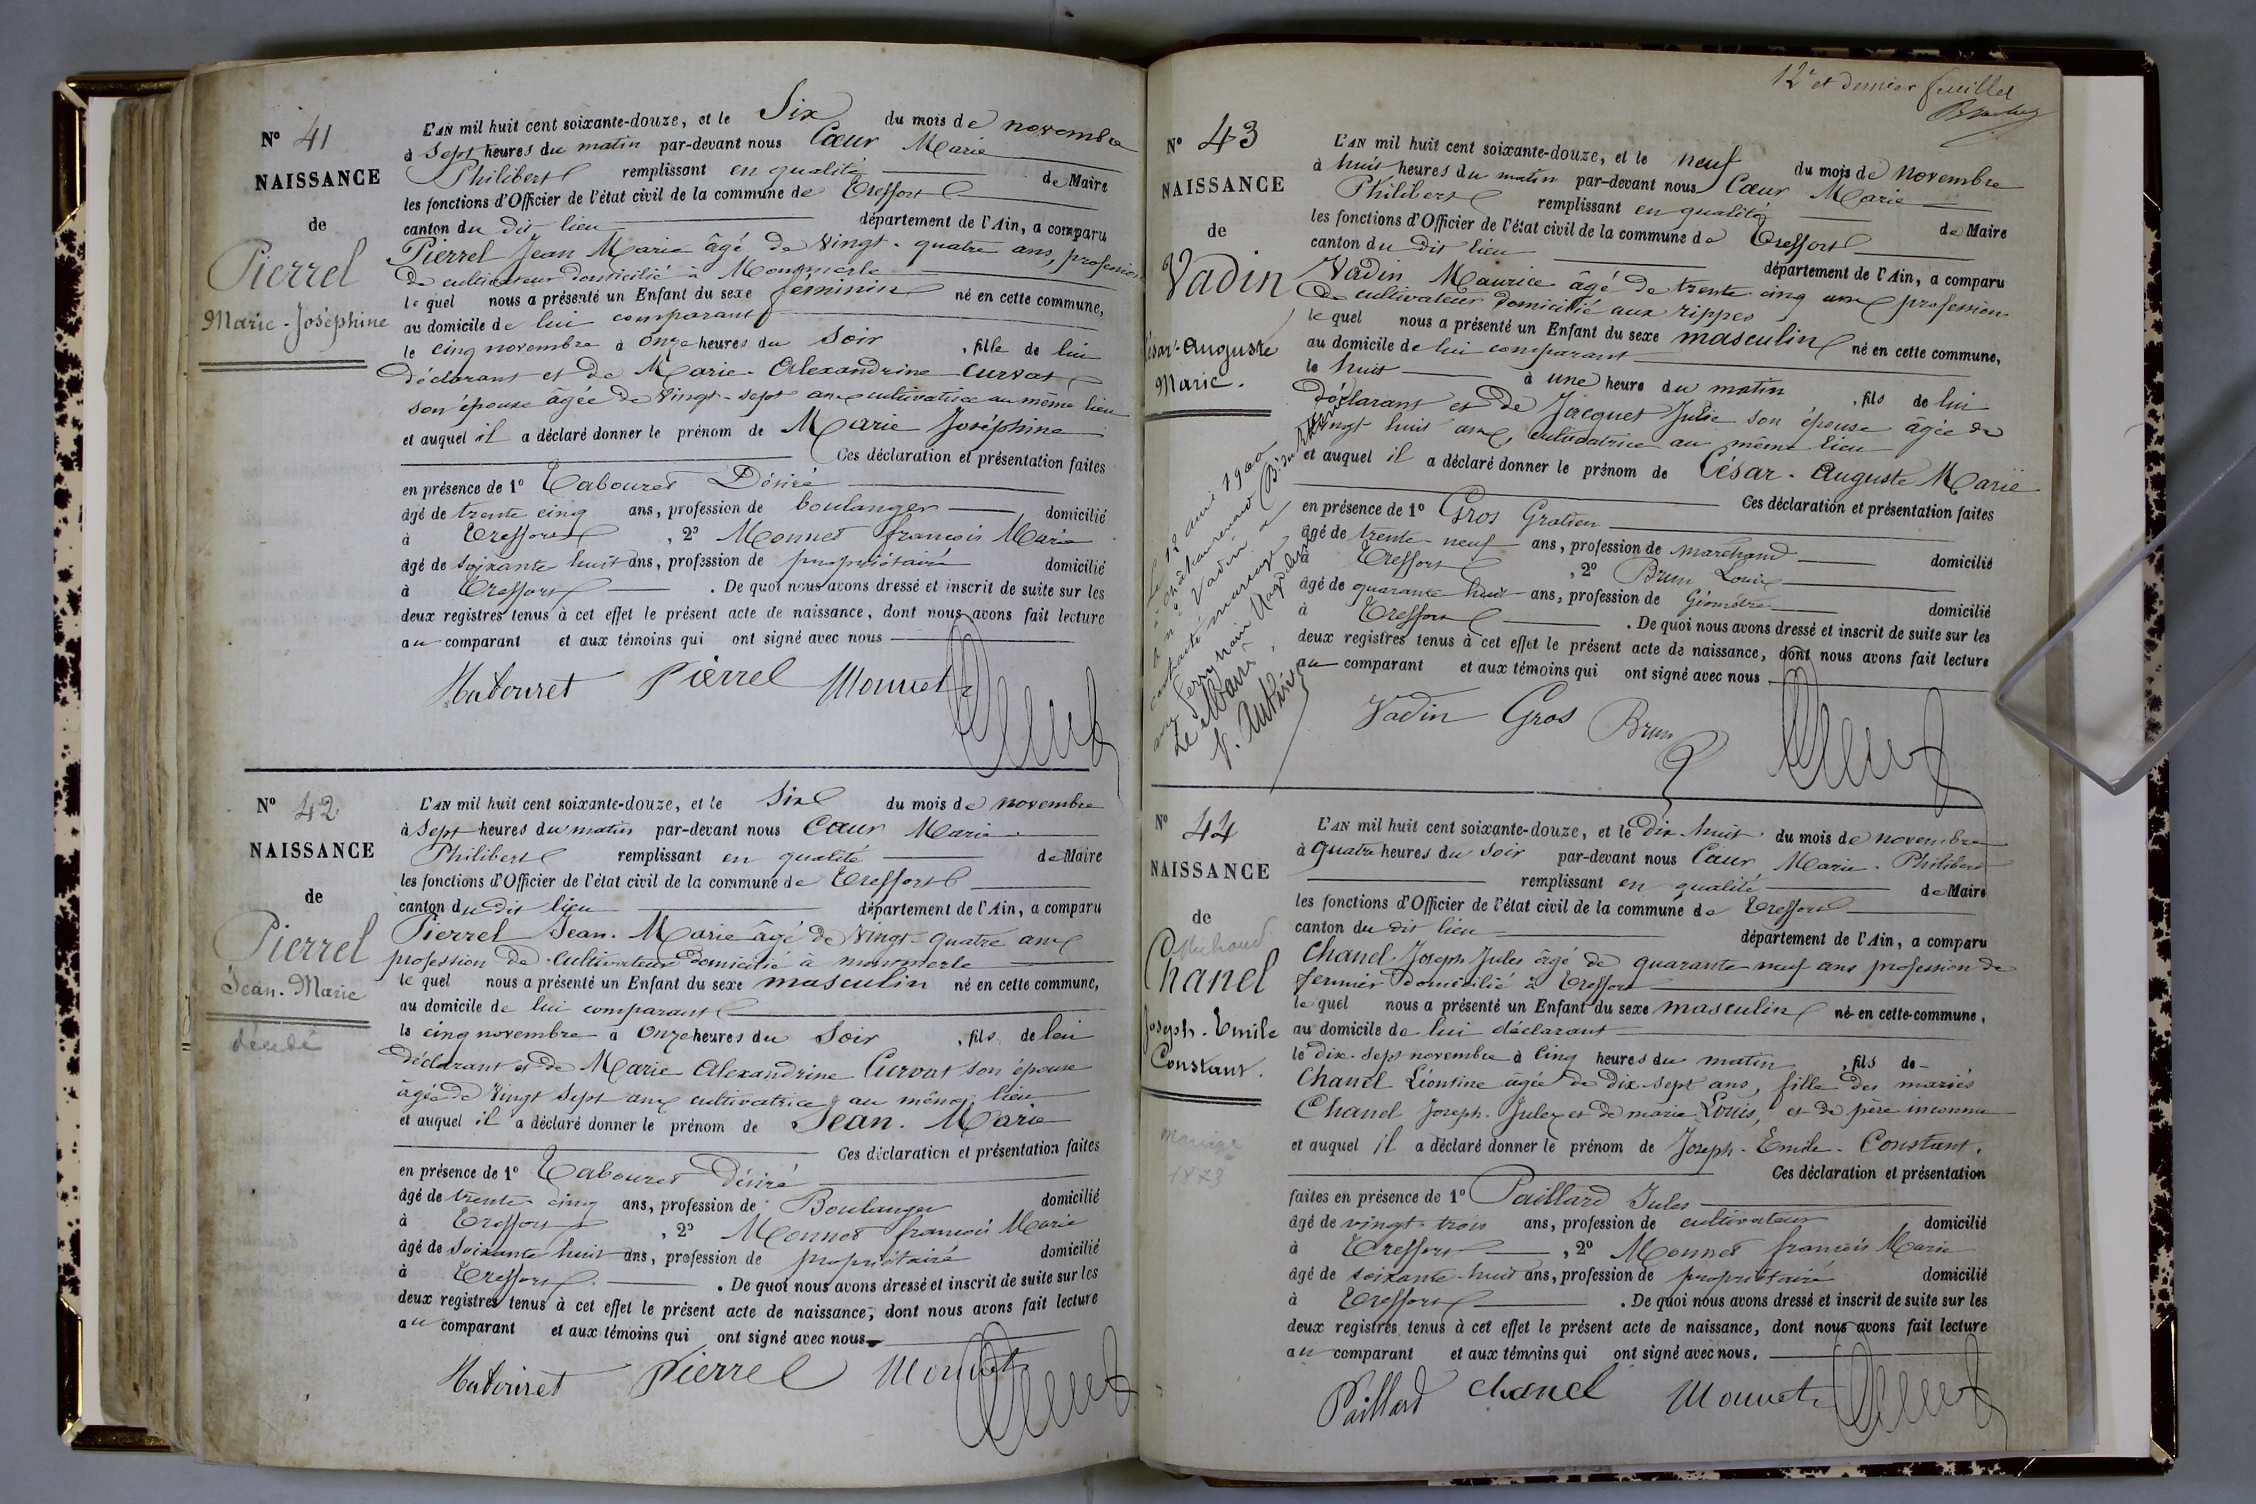 N° 41
NAISSANCE
de
Pierrel
Marie-Joséphine
L'AN mil huit cent soixante-douze, et le Six du mois de novembre
à Sept heures du matin par-devant nous Cœur Marie
Philibert remplissant en qualité de Maire
les fonctions d'Officier de l'état civil de la commune de Treffort
canton du dit lieu département de l'Ain, a comparu
Pierrel Jean Marie âgé de vingt-quatre ans, profession
de cultivateur domicilié à Montmerle
le quel nous a présenté un Enfant du sexe féminin né en cette commune,
au domicile de lui comparant
le cinq novembre à onze heures du soir, fille de lui
déclarant et de Marie-Alexandrine Curvat
son épouse âgée de vingt-sept ans cultivatrice au même lieu
et auquel il a déclaré donner le prénom de Marie Joséphine
Ces déclaration et présentation faites
en présence de 1° Tabouret Désiré
âgé de trente cinq ans, profession de boulanger domicilié
à Treffort, 2° Monnet françois Marie
âgé de soixante huit ans, profession de propriétaire domicilié
à Treffort. De quoi nous avons dressé et inscrit de suite sur les
deux registres tenus à cet effet le présent acte de naissance, dont nous avons fait lecture
au comparant et aux témoins qui ont signé avec nous
Tabouret Pierrel Monnet
N° 42
NAISSANCE
de
Pierrel
Jean-Marie
décédé
L'AN mil huit cent soixante-douze, et le Six du mois de novembre
à Sept heures du matin par-devant nous Cœur Marie
Philibert remplissant en qualité de Maire
les fonctions d'Officier de l'état civil de la commune de Treffort
canton du dit lieu département de l'Ain, a comparu
Pierrel Jean-Marie âgé de vingt-quatre ans
profession de cultivateur domicilié à montmerle
le quel nous a présenté un Enfant du sexe masculin né en cette commune,
au domicile de lui comparant
le cinq novembre à onze heures du soir, fils de lui
déclarant et de Marie Alexandrine Curvat son épouse
âgée de vingt sept ans cultivatrice au même lieu
et auquel il a déclaré donner le prénom de Jean-Marie
Ces déclaration et présentation faites
en présence de 1° Tabouret Désiré
âgé de trente-cinq ans, profession de Boulanger domicilié
à Treffort, 2° Monnet françois Marie
âgé de soixante huit ans, profession de propriétaire domicilié
à Treffort. De quoi nous avons dressé et inscrit de suite sur les
deux registres tenus à cet effet le présent acte de naissance, dont nous avons fait lecture
au comparant et aux témoins qui ont signé avec nous
Tabouret Pierrel Monnet
12e et dernier feuillet
N° 43
NAISSANCE
de
Vadin
César-Auguste
Marie.
Le 12 avril 1900
à Châteaurenard
Vadin a
contracté mariage
avec
Le Maire
L'AN mil huit cent soixante-douze, et le neuf du mois de novembre
à huit heures du matin par-devant nous Cœur Marie
Philibert remplissant en qualité de Maire
les fonctions d'Officier de l'état civil de la commune de Treffort
canton du dit lieu département de l'Ain, a comparu
Vadin Maurice âgé de trente-cinq ans profession
de cultivateur domicilié aux rippes
le quel nous a présenté un Enfant du sexe masculin né en cette commune,
au domicile de lui comparant
le huit à une heure du matin, fils de lui
déclarant et de Jacquet Julie son épouse âgée de
vingt huit ans, cultivatrice au même lieu
et auquel il a déclaré donner le prénom de César-Auguste Marie
Ces déclaration et présentation faites
en présence de 1° Gros Gratien
âgé de trente-neuf ans, profession de marchand domicilié
à Treffort, 2° Brun Louis
âgé de quarante huit ans, profession de Géomètre domicilié
à Treffort. De quoi nous avons dressé et inscrit de suite sur les
deux registres tenus à cet effet le présent acte de naissance, dont nous avons fait lecture
au comparant et aux témoins qui ont signé avec nous
Vadin Gros Brun
N° 44
NAISSANCE
de
Chanel
Joseph-Emile
Constant.
mariage
1873
L'AN mil huit cent soixante-douze, et le dix-huit du mois de novembre
à quatre heures du soir par-devant nous Cœur Marie-Philibert
remplissant en qualité de Maire
les fonctions d'Officier de l'état civil de la commune de Treffort
canton du dit lieu département de l'Ain, a comparu
Chanel Joseph Jules âgé de quarante neuf ans profession de
fermier domicilié à Treffort
le quel nous a présenté un Enfant du sexe masculin né en cette commune,
au domicile de lui déclarant
le dix-sept novembre à cinq heures du matin, fils de
Chanel Léontine âgée de dix-sept ans, fille des mariés
Chanel Joseph-Jules et de marie Louis, et de père inconnu
et auquel il a déclaré donner le prénom de Joseph-Emile-Constant.
Ces déclaration et présentation
faites en présence de 1° Paillard Jules
âgé de vingt-trois ans, profession de cultivateur domicilié
à Treffort, 2° Monnet françois Marie
âgé de soixante-huit ans, profession de propriétaire domicilié
à Treffort. De quoi nous avons dressé et inscrit de suite sur les
deux registres tenus à cet effet le présent acte de naissance, dont nous avons fait lecture
au comparant et aux témoins qui ont signé avec nous.
Paillard Chanel Monnet